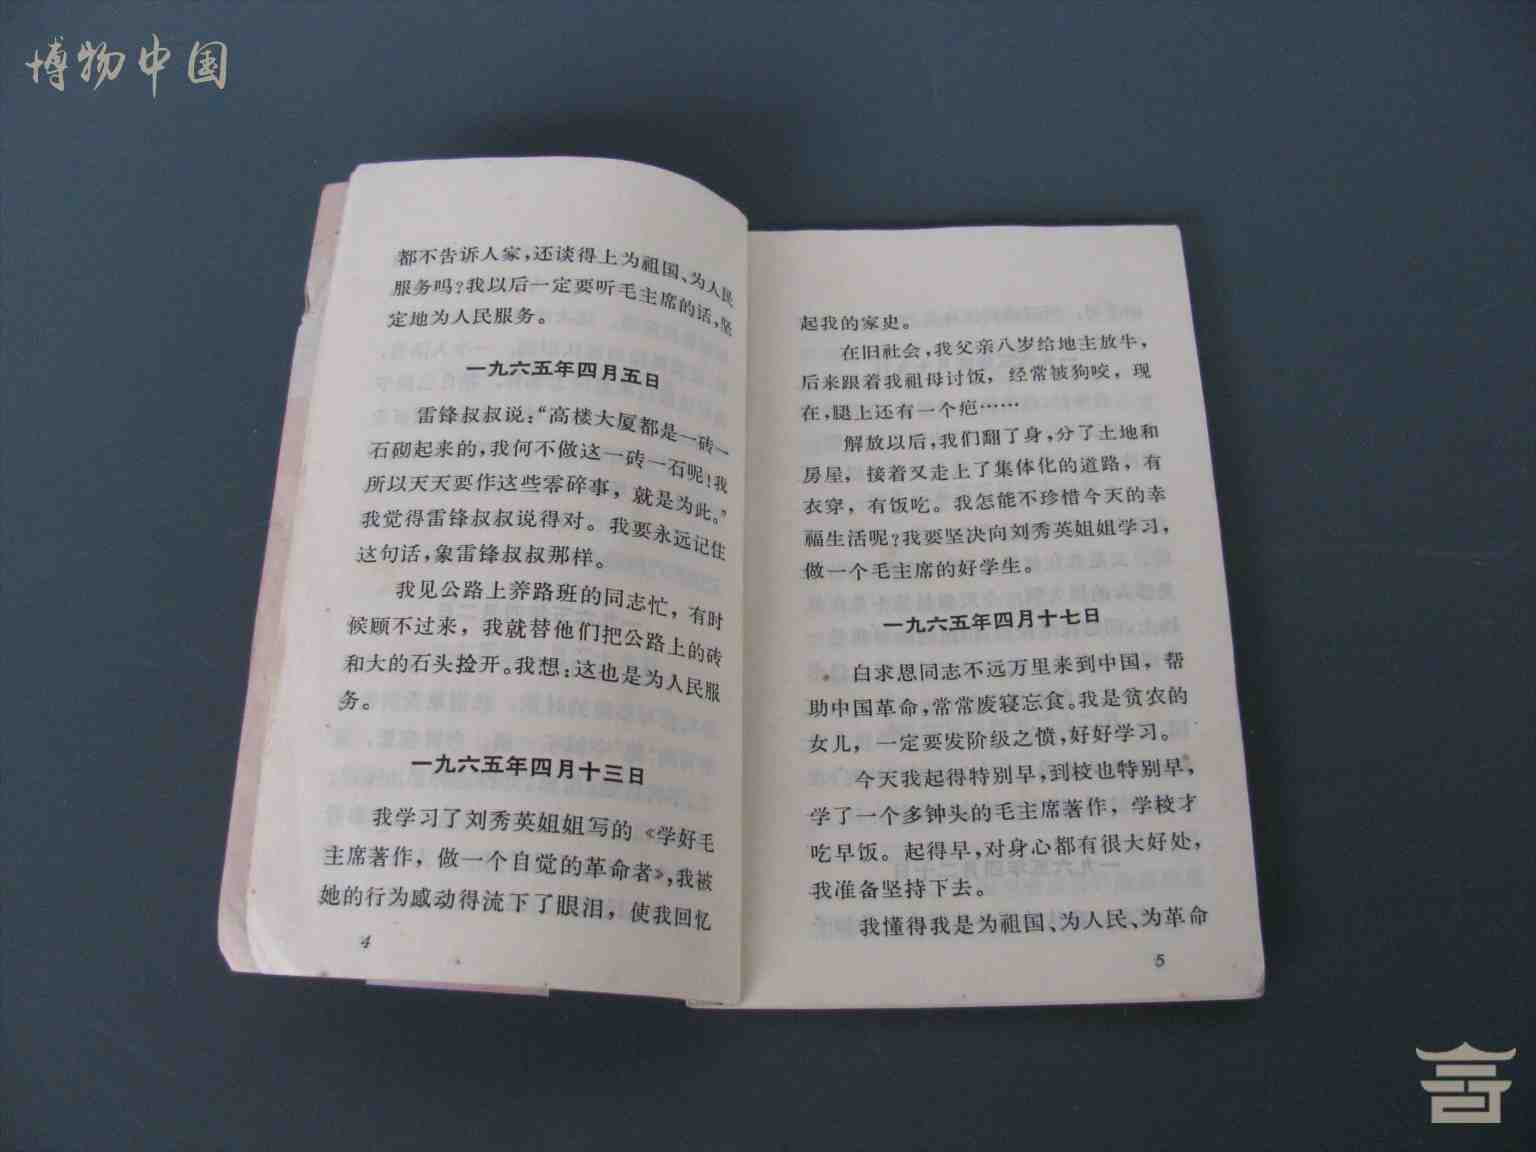 博物中国
都不告诉人家，还谈得上为祖国、为人民
服务吗？我以后一定要听毛主席的话，坚
定地为人民服务。
一九六五年四月五日
雷锋叔叔说：“高楼大厦都是一砖一
石砌起来的，我何不做这一砖一石呢！我
所以天天要作这些零碎事，就是为此。”
我觉得雷锋叔叔说得对。我要永远记住
这句话，象雷锋叔叔那样。
我见公路上养路班的同志忙，有时
候顾不过来，我就替他们把公路上的砖
和大的石头捡开。我想：这也是为人民服
务。
一九六五年四月十三日
我学习了刘秀英姐姐写的《学好毛
主席著作，做一个自觉的革命者》，我被
她的行为感动得流下了眼泪，使我回忆
4
起我的家史。
在旧社会，我父亲八岁给地主放牛，
后来跟着我祖母讨饭，经常被狗咬，现
在，腿上还有一个疤……
解放以后，我们翻了身，分了土地和
房屋，接着又走上了集体化的道路，有
衣穿，有饭吃。我怎能不珍惜今天的幸
福生活呢？我要坚决向刘秀英姐姐学习，
做一个毛主席的好学生。
一九六五年四月十七日
白求恩同志不远万里来到中国，帮
助中国革命，常常废寝忘食。我是贫农的
女儿，一定要发阶级之愤，好好学习。
今天我起得特别早，到校也特别早，
学了一个多钟头的毛主席著作，学校才
吃早饭。起得早，对身心都有很大好处，
我准备坚持下去。
我懂得我是为祖国、为人民、为革命
5